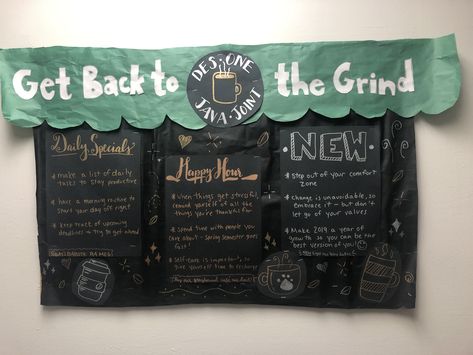 Get Back to
DES·ONE
JAVA·JOINT
the Grind
Daily Specials
* make a list of daily
tasks to stay productive
* have a morning routine to
start your day off right
* keep track of upcoming
deadlines + try to get ahead
Happy Hour
* When things get stressful,
remind yourself of all the
things you're thankful for
* Spend time with people you
care about - Spring Semester goes
fast!
* Self-care is important, so
give yourself time to recharge
NEW
* Step out of your comfort
zone
* change is unavoidable, so
embrace it - but don't
let go of your values
* Make 2019 a year of
growth so you can be the
best version of you